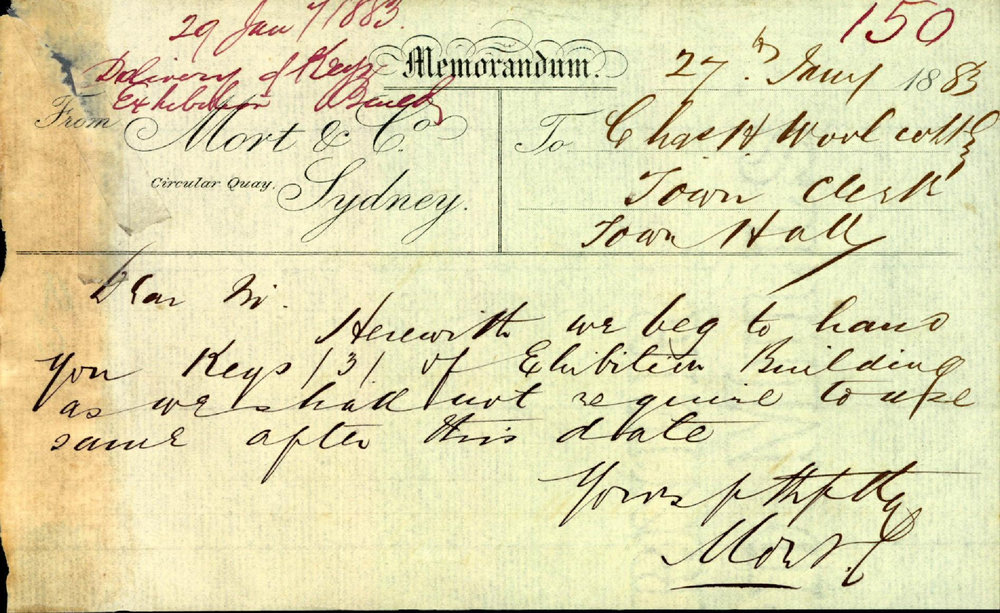 29 Jany 1883
150
Delivery of Keys
Exhibition
Memorandum.
27th Jany 1883
From Mort & Co.
Circular Quay. Sydney.
To Chas H Woolcott
Town Clerk
Town Hall
Dear Sir.
Herewith we beg to hand
you Keys /3/ of Ehibition Building
as we shall not require to use
same after this date
Yours
Mort & C